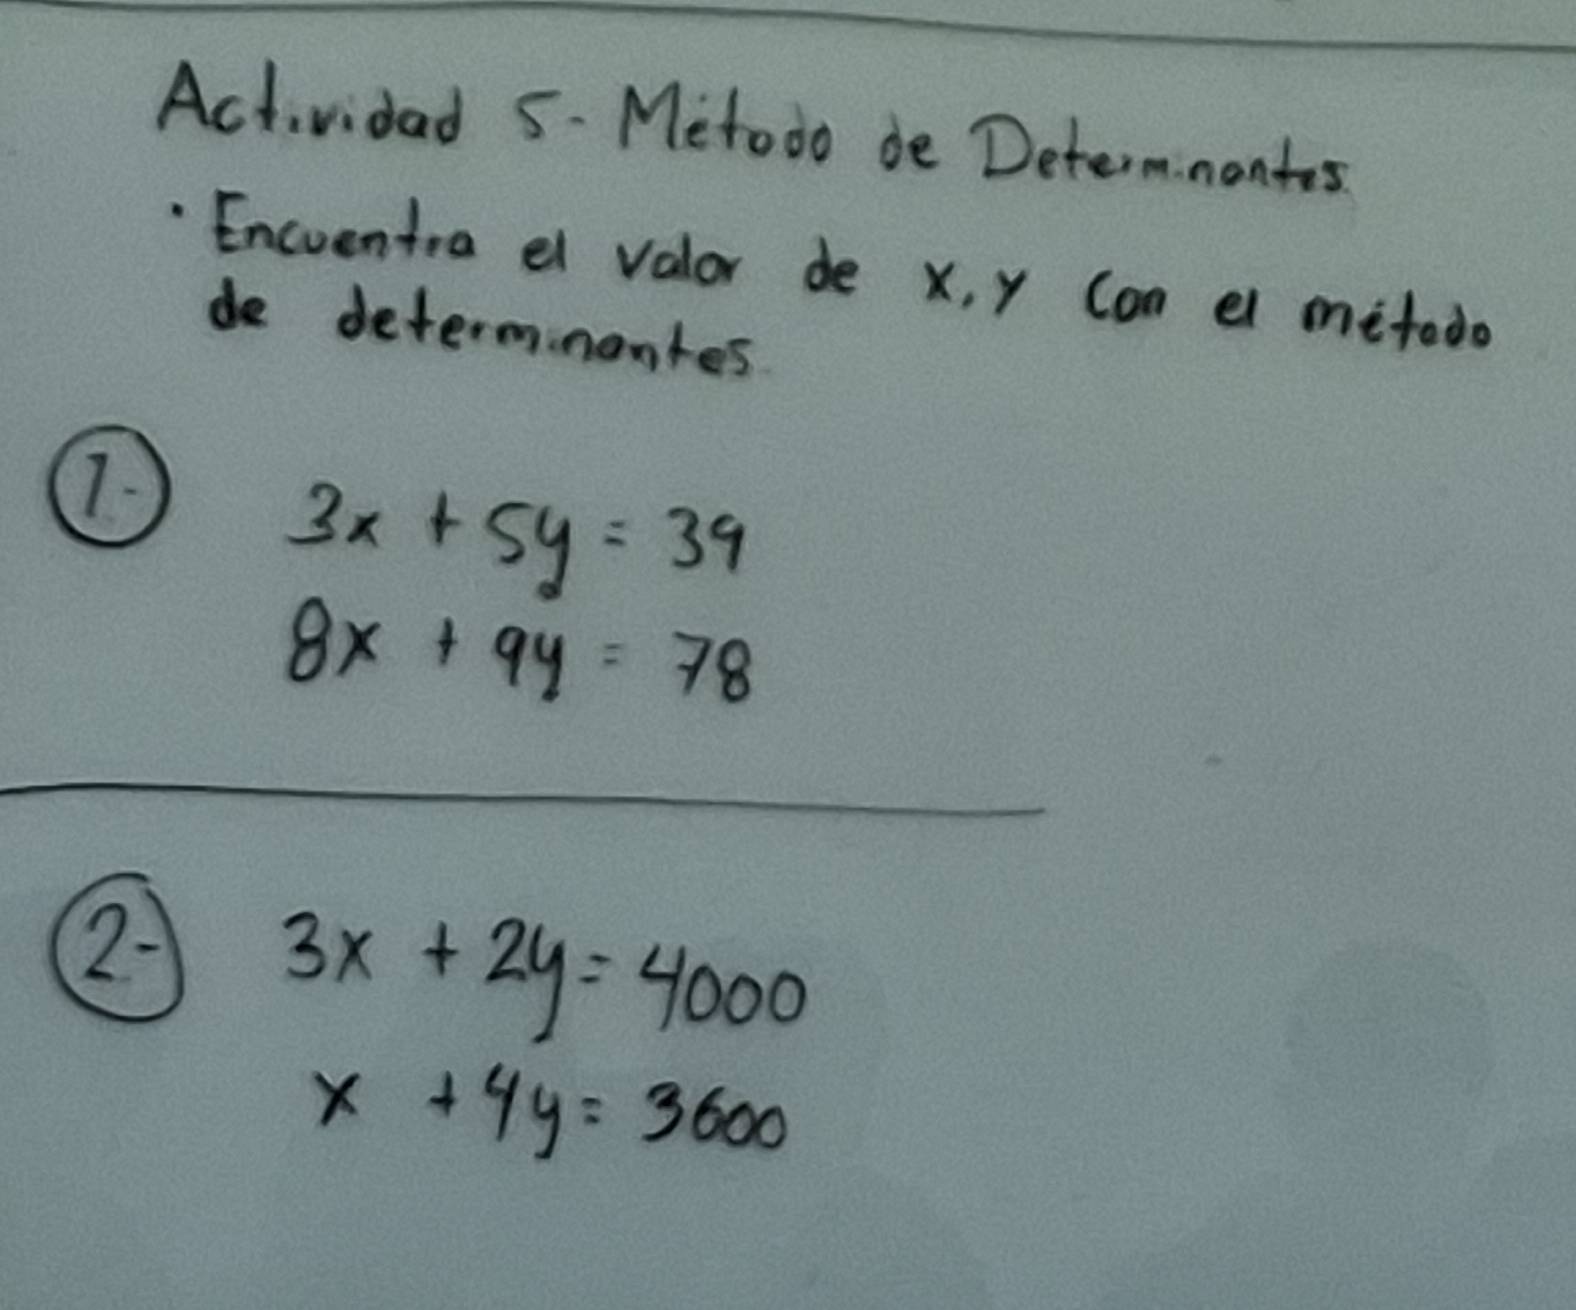 Actividad 5- Método de Determinantes
· Encuentra el valor de x, y con el método
de determinantes.
1.-
3x + 5y = 39
8x + 9y = 78
2-
3x + 2y = 4000
x + 4y = 3600